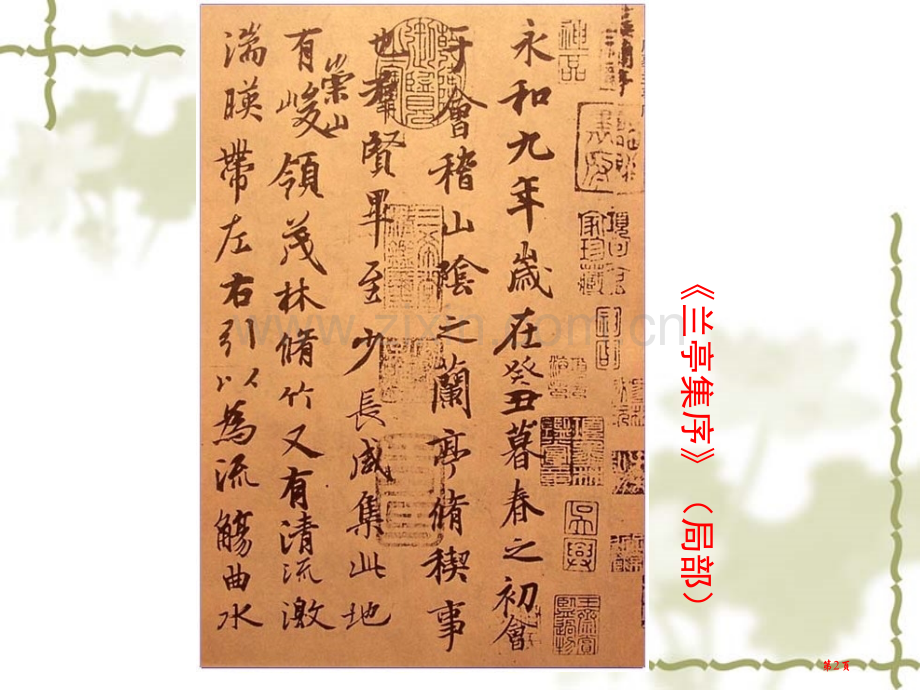 永和九年歲在癸丑暮春之初會
于會稽山陰之蘭亭脩稧事
也羣賢畢至少長咸集此地
有崇山峻領茂林脩竹又有清流激
湍暎帶左右引以為流觴曲水
《兰亭集序》（局部）
www.zixin.com.cn
第2页